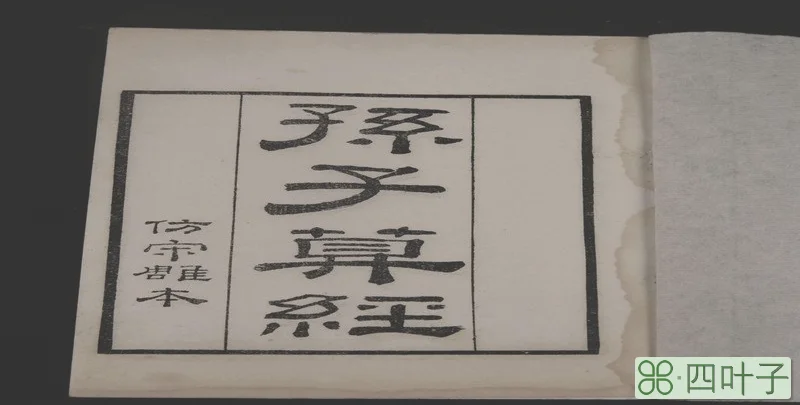 孫子算經
仿宋雕本
四叶子